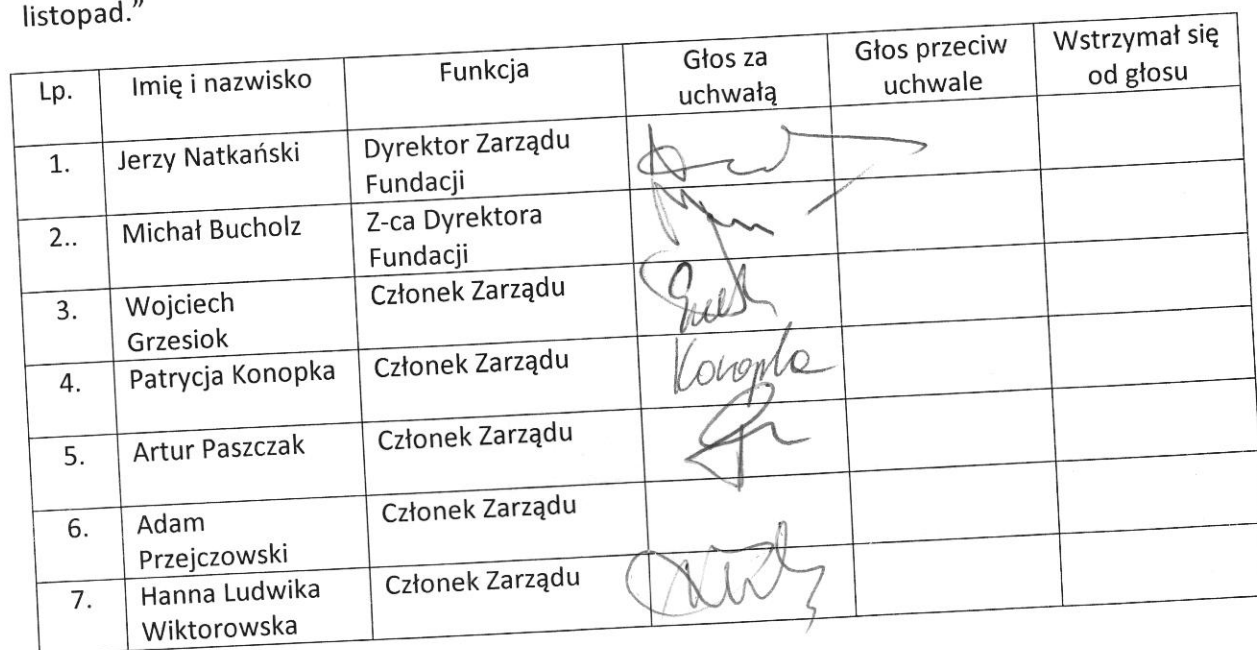 listopad.”
Lp. Imię i nazwisko Funkcja Głos za uchwałą Głos przeciw uchwale Wstrzymał się od głosu
1. Jerzy Natkański Dyrektor Zarządu Fundacji
2.. Michał Bucholz Z-ca Dyrektora Fundacji
3. Wojciech Grzesiok Członek Zarządu
4. Patrycja Konopka Członek Zarządu Konopka
5. Artur Paszczak Członek Zarządu
6. Adam Przejczowski Członek Zarządu
7. Hanna Ludwika Wiktorowska Członek Zarządu